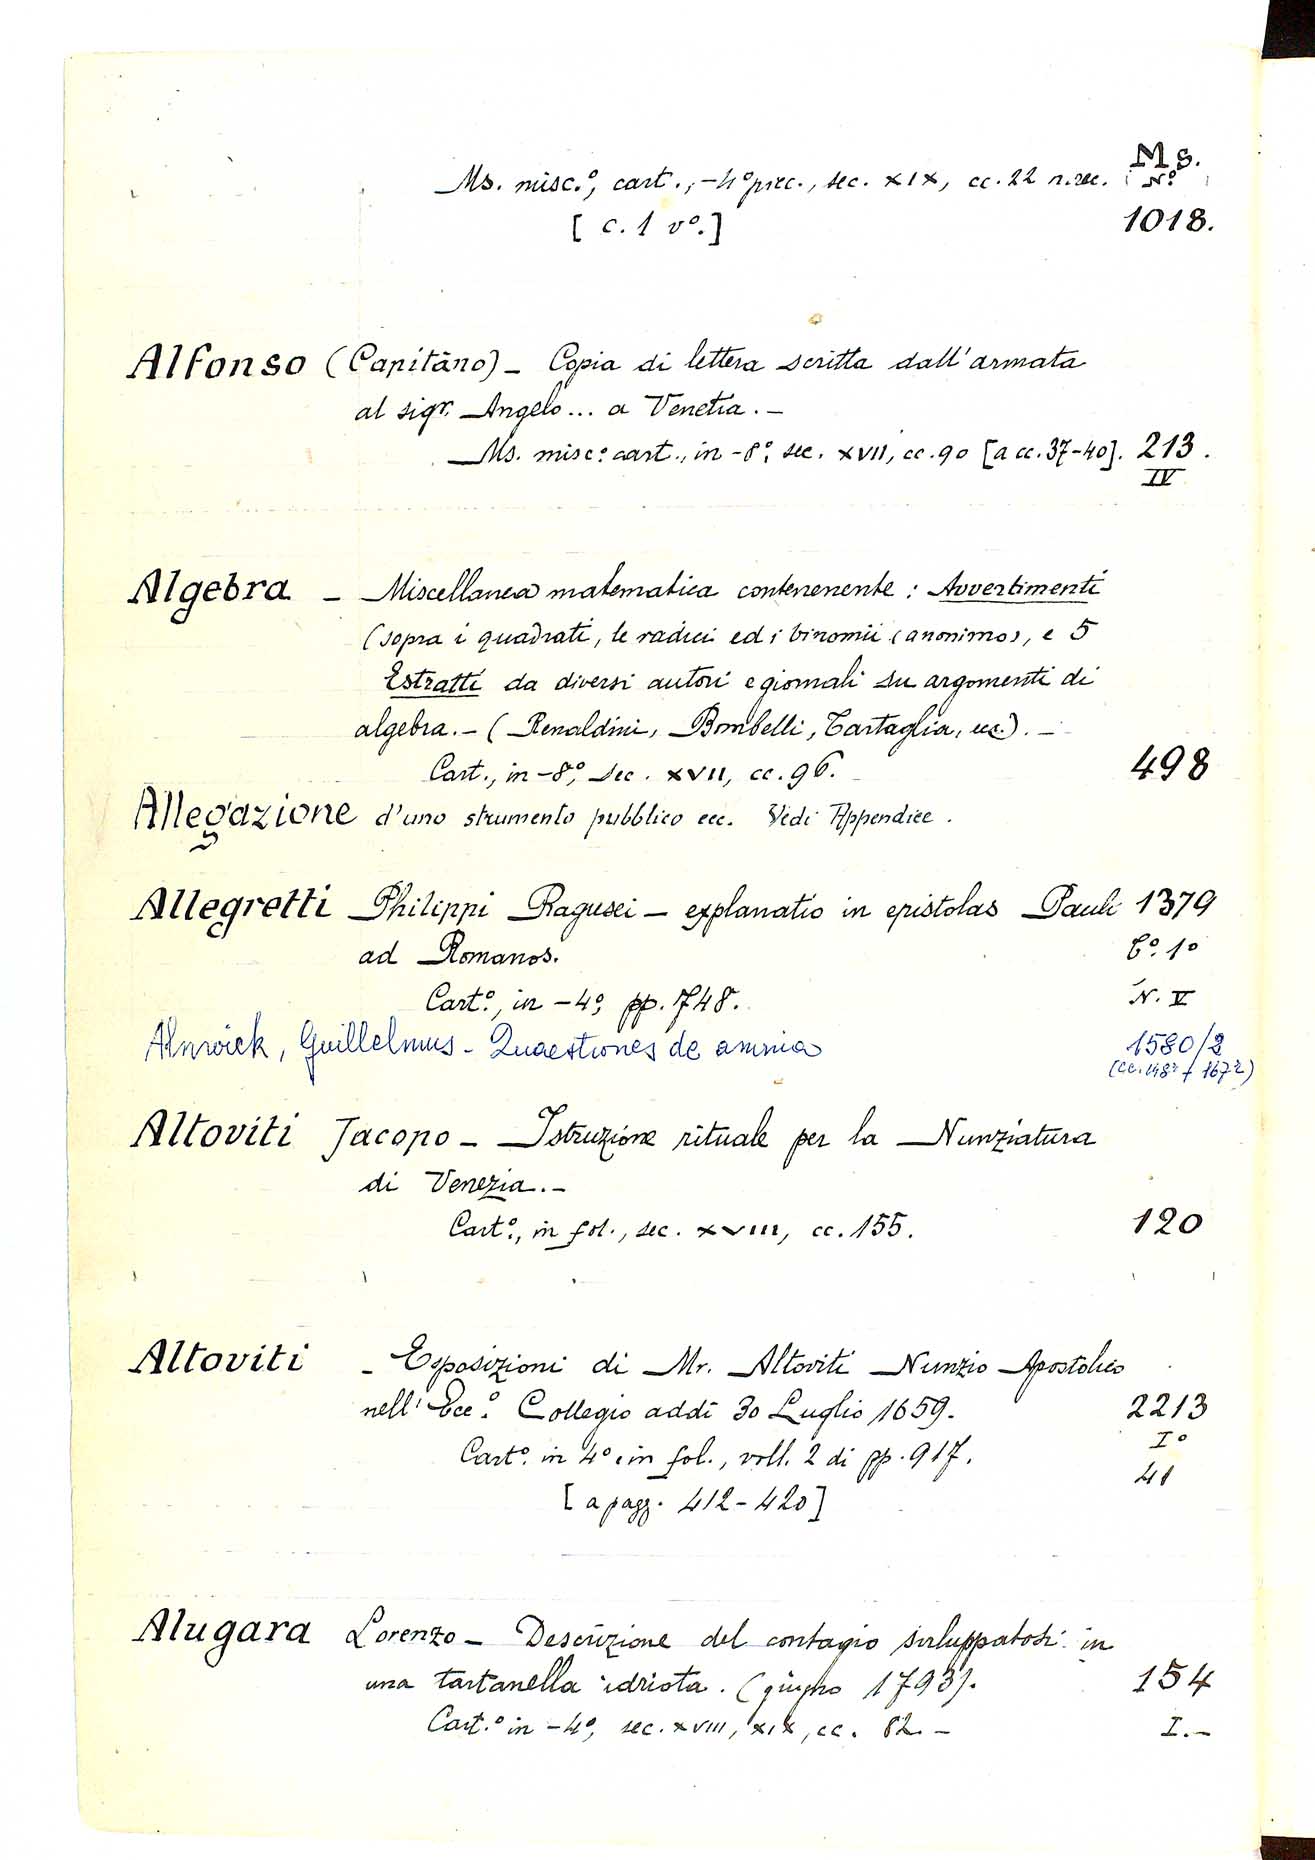 Ms.
Ms. misc.º, cart., -4º picc., sec. XIX, cc. 22 n. rec. Nº
[ c. 1 vº. ] 1018.
Alfonso (Capitano) - Copia di lettera scritta dall'armata
al sigr. Angelo... a Venetia. -
Ms. misc.º cart., in -8º, sec. XVII, cc. 90 [a cc. 37-40]. 213.
IV
Algebra - Miscellanea matematica contenenente : Avvertimenti
(sopra i quadrati, le radici ed i binomii (anonimo), e 5
Estratti da diversi autori e giornali su argomenti di
algebra. - ( Renaldini, Bombelli, Tartaglia, ecc.). -
Cart., in -8º, sec. XVII, cc. 96. 498
Allegazione d'uno strumento pubblico ecc. Vedi Appendice.
Allegretti Philippi Ragusei - explanatio in epistolas Pauli 1379
ad Romanos. Cº. 1º
Cart.º, in -4º, pp. 748. N. V
Alnwick, Guillelmus - Quaestiones de anima 1580/2
(cc. 148r + 167r)
Altoviti Jacopo - Istruzione rituale per la Nunziatura
di Venezia. -
Cart.º, in fol., sec. XVIII, cc. 155. 120
Altoviti - Esposizioni di Mr. Altoviti Nunzio Apostolico
nell'Ecc.º Collegio addì 30 Luglio 1659. 2213
Cart.º in 4º e in fol., voll. 2 di pp. 917. Iº
41
[a pagg. 412-420]
Alugara Lorenzo - Descrizione del contagio sviluppatosi in
una tartanella idriota. (giugno 1793). 154
Cart.º in -4º, sec. XVIII, XIX, cc. 82. - I. -